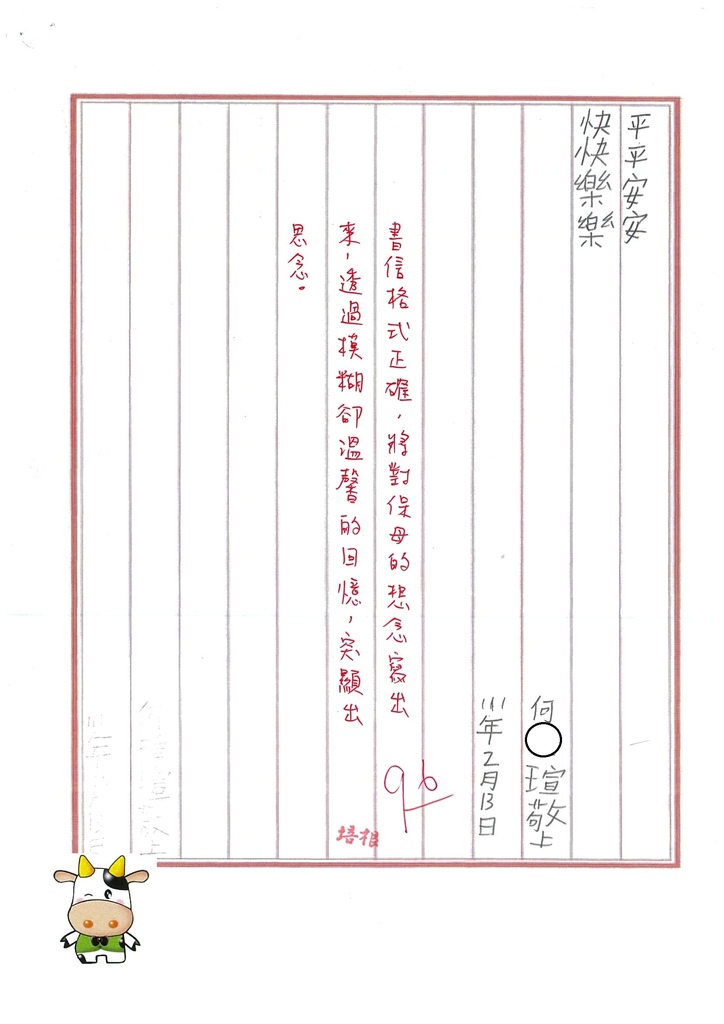 平平安安
快快樂樂
何 瑄敬上
111年2月13日
書信格式正確，將對保母的想念寫出
來，透過模糊卻溫馨的回憶，突顯出
思念。
96
培根